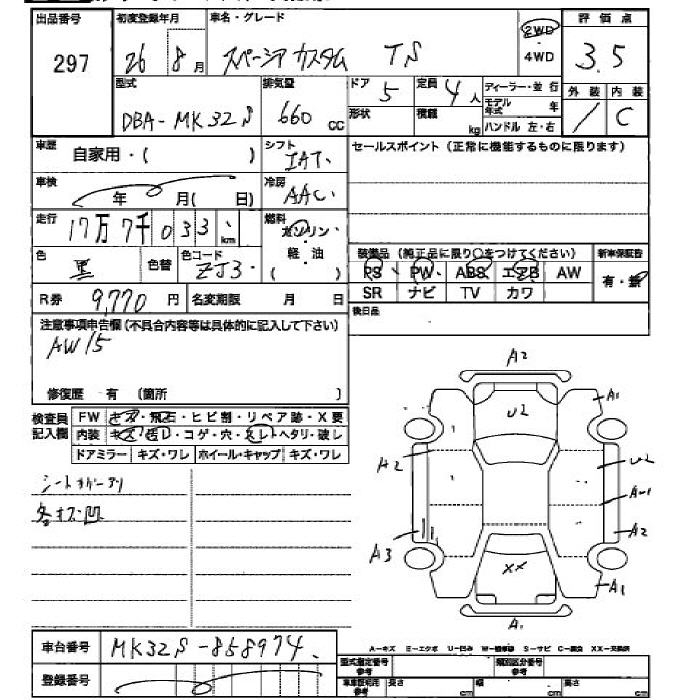 出品番号 初度登録年月 車名・グレード 2WD 評価点
297 26 8月 スペーシア カスタム TS 4WD 3.5
型式 排気量 ドア 5 定員 4人 ディーラー・並行 外装 内装
DBA-MK32S 660cc 形状 積載 kg モデル年式 年 / C
ハンドル 左・右
車歴 自家用・( ) シフト IAT. セールスポイント (正常に機能するものに限ります)
車検 年 月( 日) 冷房 AAC.
走行 17万7千033km 燃料 ガソリン・軽油 ( )
色 黒 色替 色コード ZJ3. 装備品 (純正品に限り○をつけてください) 新車保証書
PS PW ABS エアB AW 有・無
R券 9,770円 名変期限 月 日 SR ナビ TV カワ
注意事項申告欄 (不具合内容等は具体的に記入して下さい) 後日品
AW15
修復歴 有 (箇所 )
検査員記入欄 FW キズ・飛石・ヒビ割・リペア跡・X要
内装 キズ・汚レ・コゲ・穴・スレ・ヘタリ・破レ
ドアミラー キズ・ワレ ホイール・キャップ キズ・ワレ
シートカバーアリ
各キズ・凹
A2
A1
U2
A2
U2
A-1
A3
A2
XX
A1
A1
車台番号 MK32S-858974.
A-キズ E-エクボ U-凹み W-補修跡 S-サビ C-腐食 XX-交換済
登録番号 型式指定番号 参考 類別区分番号 参考
車庫証明用 参考 長さ cm 幅 cm 高さ cm